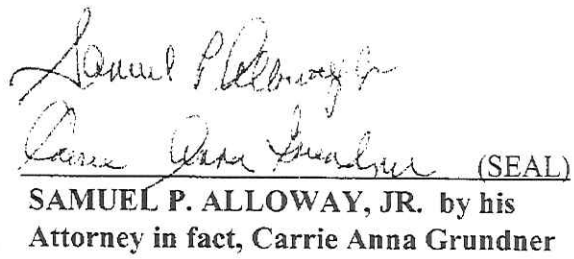 Samuel P Alloway Jr
Carrie Anna Grundner (SEAL)
SAMUEL P. ALLOWAY, JR. by his
Attorney in fact, Carrie Anna Grundner